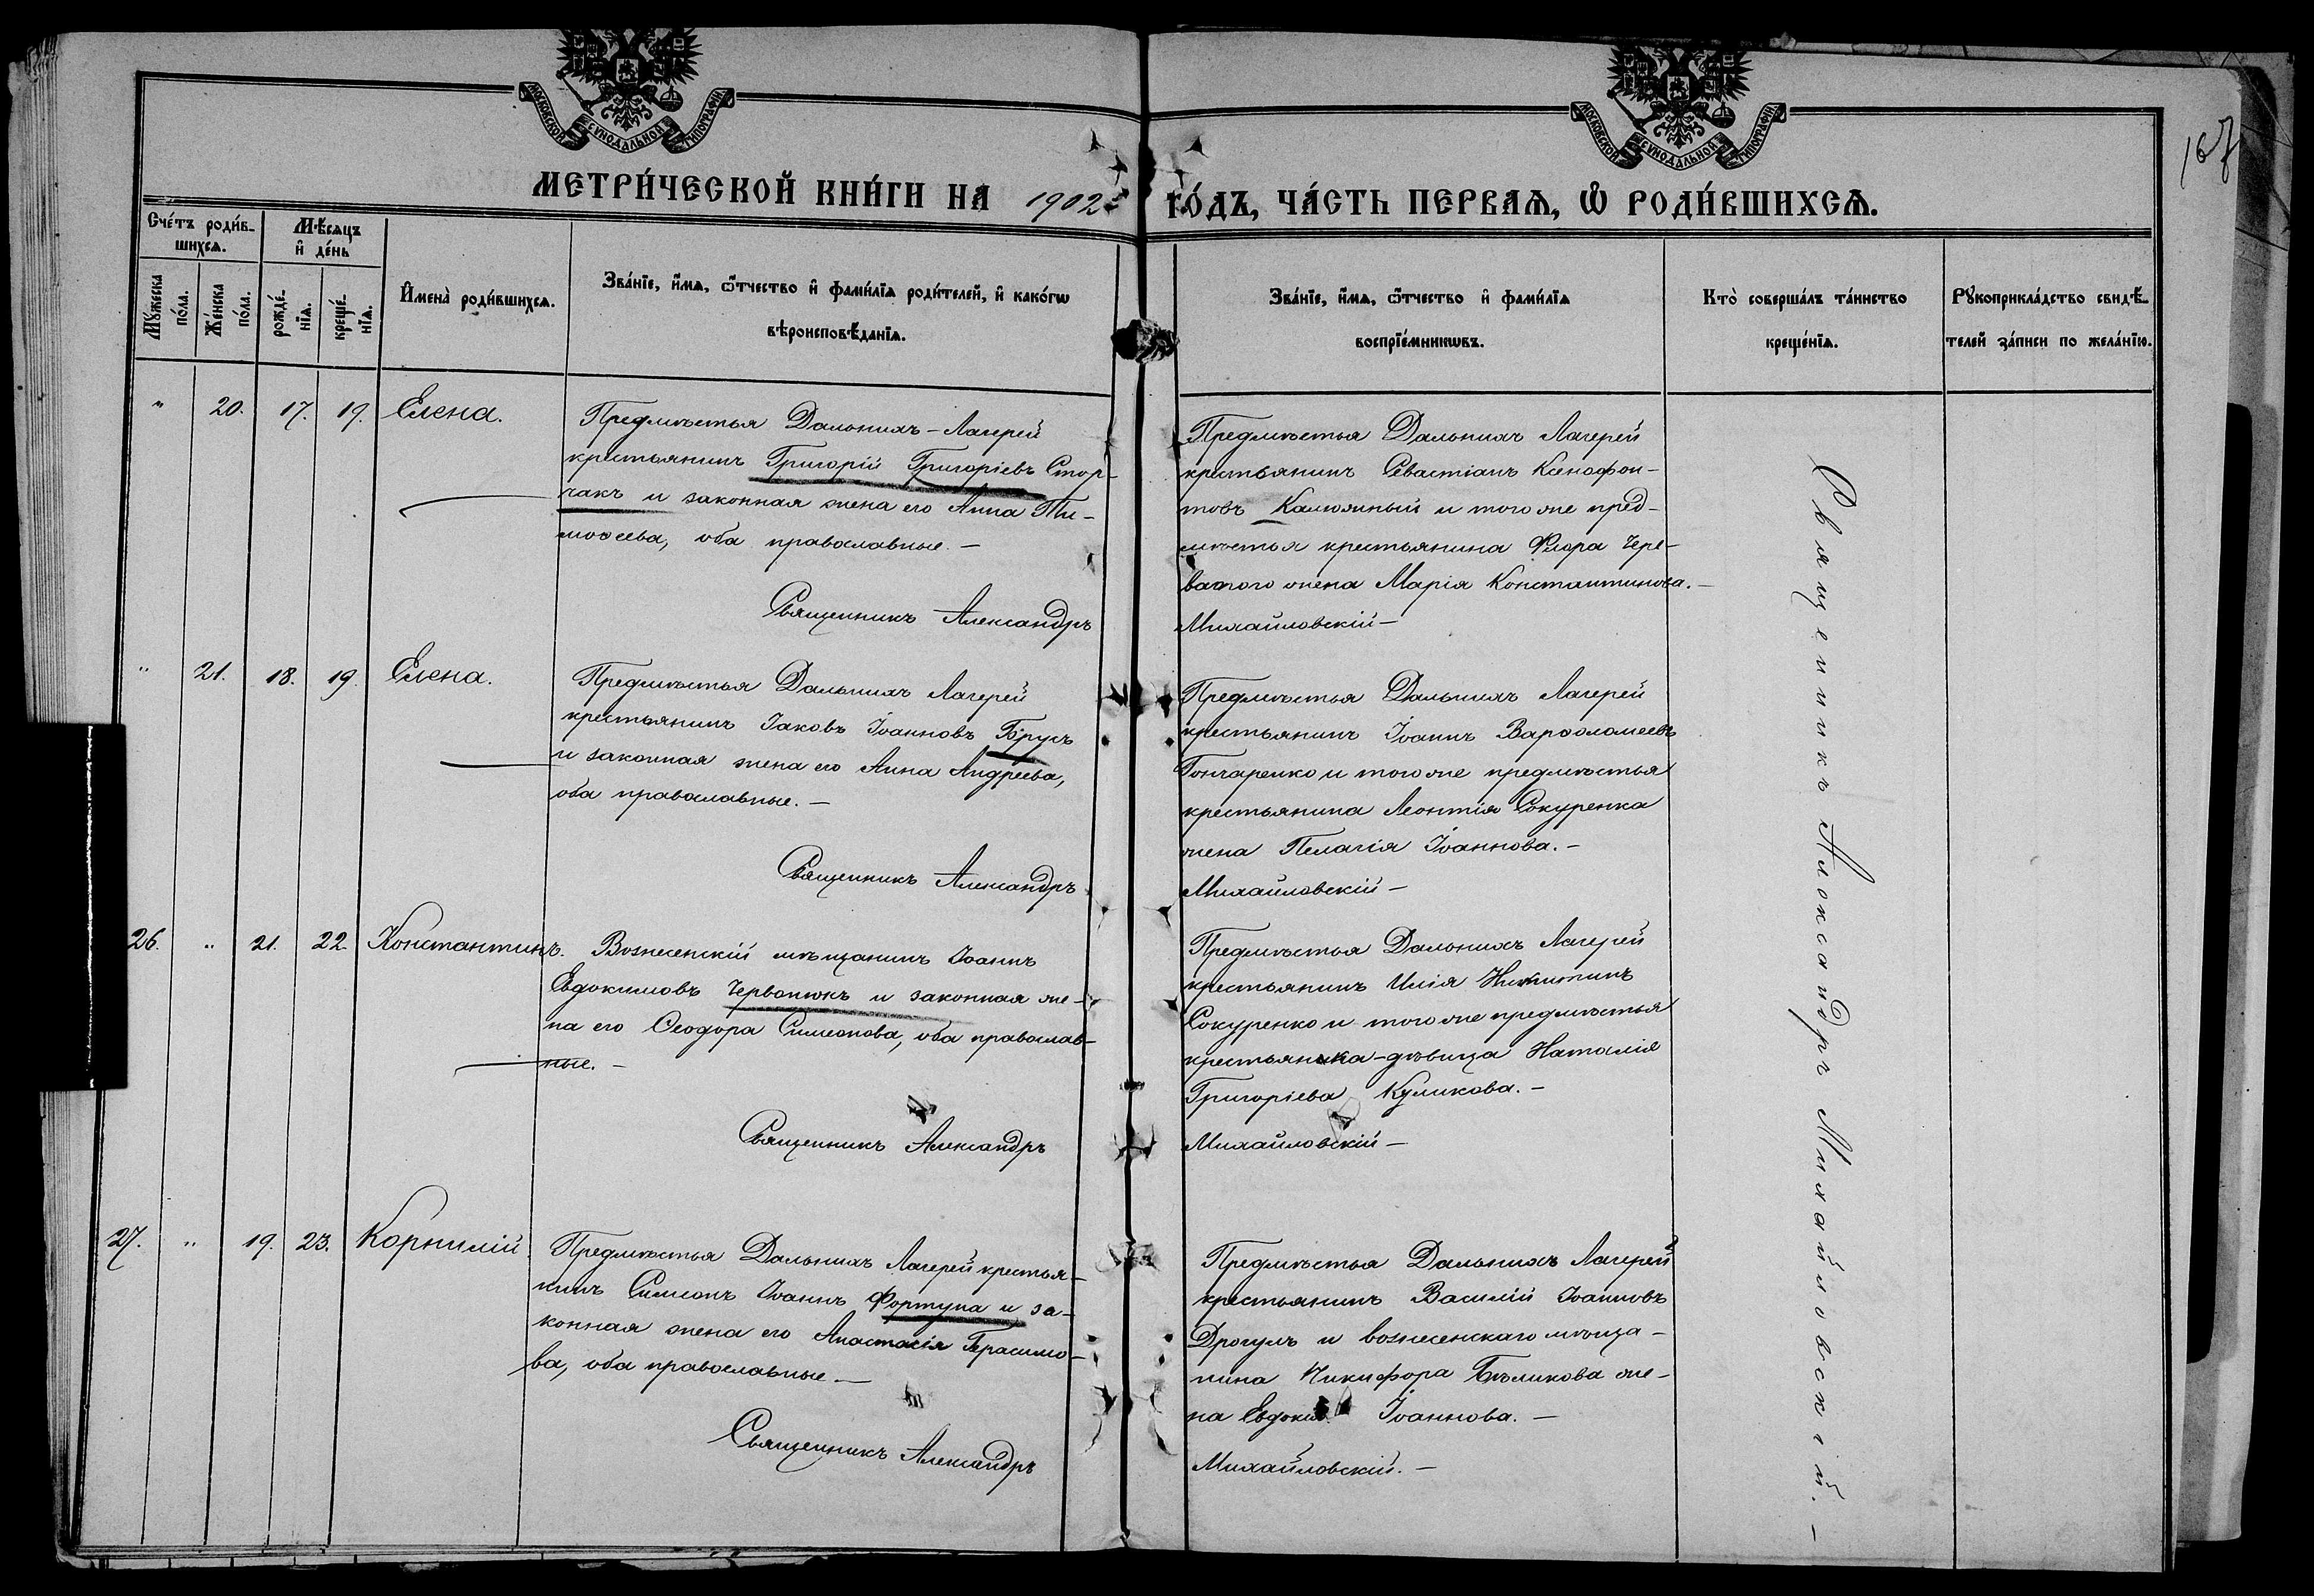 МОСКОВСКОЙ СѴНОДАЛЬНОЙ ТИПОГРАФІИ
МОСКОВСКОЙ СѴНОДАЛЬНОЙ ТИПОГРАФІИ
167
МЕТРИ́ЧЕСКОЙ КНИ́ГИ НА 1902й ГО́ДЪ, ЧА́СТЬ ПЕ́РВАѦ, Ѡ҆ РОДИ́ВШИХСѦ.
Сче́тъ роди́в-
шихсѧ.
Мѣ́сѧцъ
и҆ де́нь
Мꙋ́жеска
по́ла.
Же́нска
по́ла.
рожде́-
нїѧ.
креще́-
нїѧ.
И҆мена̀ роди́вшихсѧ.
Зва́нїе, и҆́мѧ, ѻ҆́тчество и҆ фами́лїѧ роди́телей, и҆ како́гѡ
вѣроисповѣ́данїѧ.
Зва́нїе, и҆́мѧ, ѻ҆́тчество и҆ фами́лїѧ
воспрїе́мникѡвъ.
Кто̀ соверша́лъ та́инство
креще́нїѧ.
Рꙋкоприкла́дство свидѣ́-
телей за́писи по жела́нїю.
" 20. 17. 19. Елена.
Предмѣстья Дальнихъ-Лагерей
крестьянинъ Григорій Григоріевъ Стор-
чакъ и законная жена его Анна Ти-
моѳеева, оба православные. —
Священникъ Александръ
Предмѣстья Дальнихъ Лагерей
крестьянинъ Севастіанъ Ксенофон-
товъ Калюжный и того же пред-
мѣстья крестьянина Флора Чере-
ватого жена Марія Константинова. —
Михайловскій —
" 21. 18. 19. Елена.
Предмѣстья Дальнихъ Лагерей
крестьянинъ Іаковъ Іоанновъ Брусъ
и законная жена его Анна Андреева,
оба православные. —
Священникъ Александръ
Предмѣстья Дальнихъ Лагерей
крестьянинъ Іоаннъ Варѳоломеевъ
Гончаренко и того же предмѣстья
крестьянина Леонтія Сокуренка
жена Пелагія Іоаннова. —
Михайловскій —
26. " 21. 22. Константинъ.
Вознесенскій мѣщанинъ Іоаннъ
Евдокимовъ Червонюкъ и законная же-
на его Ѳеодора Симеонова, оба православ-
ные. —
Священникъ Александръ
Предмѣстья Дальнихъ Лагерей
крестьянинъ Илія Никитинъ
Сокуренко и того же предмѣстья
крестьянка-дѣвица Наталія
Григоріева Куликова. —
Михайловскій —
27. " 19. 23. Корнилій
Предмѣстья Дальнихъ Лагерей крестья-
нинъ Симеонъ Іоаннъ Фортуна и за-
конная жена его Анастасія Герасимо-
ва, оба православные —
Священникъ Александръ
Предмѣстья Дальнихъ Лагерей
крестьянинъ Василій Іоанновъ
Дрогулъ и вознесенскаго мѣща-
нина Никифора Бѣликова же-
на Евдокія Іоаннова. —
Михайловскій. —
Священникъ Александръ Михайловскій. —